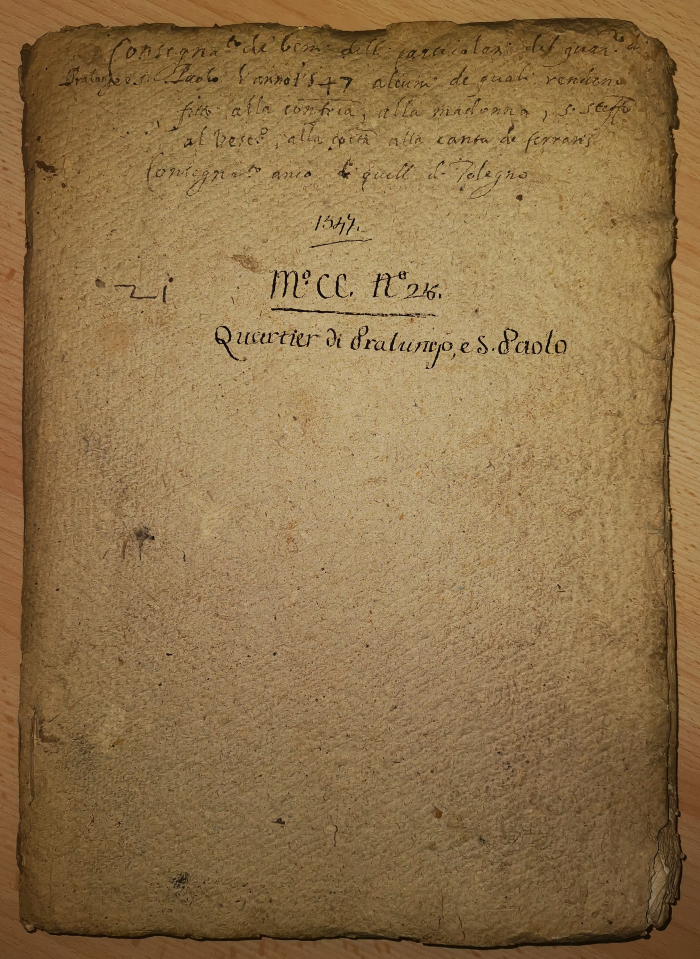 Consegna.to de beni delli particolari del quar.ro di
Pralungo e S. Paolo l'anno 1547 alcuni de quali rendeno
fitto alla contraa, alla madonna, S. Steff.o
al Vesc.o, alla alla canta de ferraris
Consegna.to anco di quelli di Tolegno
1547.
21
M.o CC. N.o 26.
Quartier di Pralungo, e S. Paolo